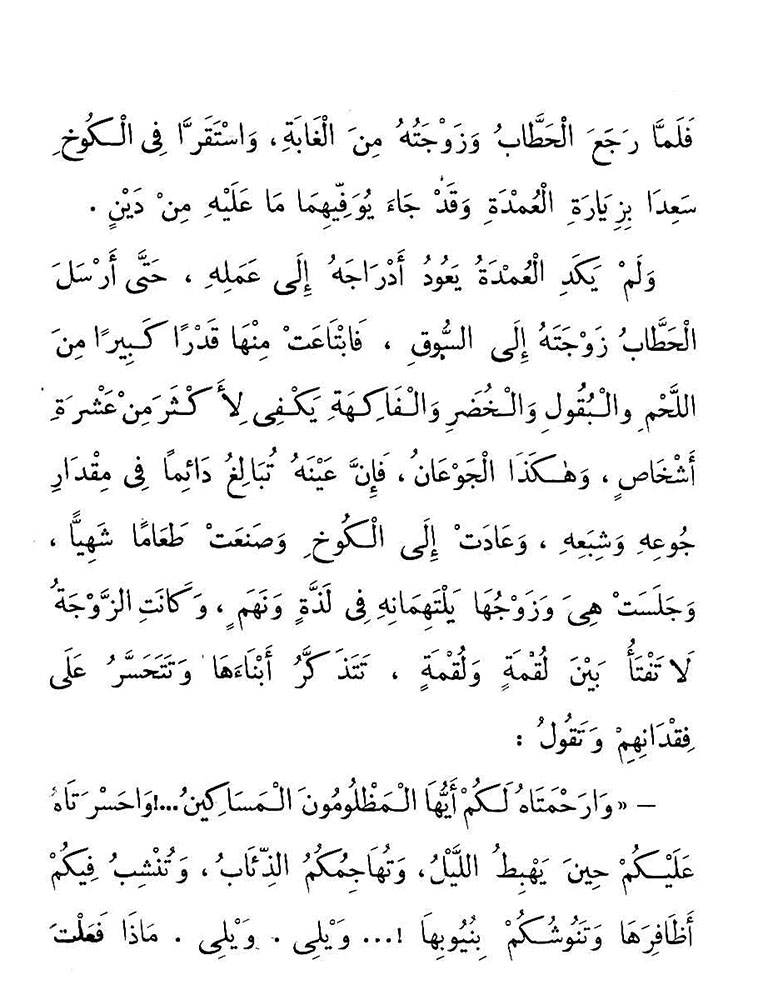 فَلَمَّا رَجَعَ الْحَطَّابُ وَزَوْجَتُهُ مِنَ الْغَابَةِ، وَاسْتَقَرَّا فِى الْكُوخِ
سَعِدَا بِزِيَارَةِ الْعُمْدَةِ وَقَدْ جَاءَ يُوَفِّيهِمَا مَا عَلَيْهِ مِنْ دَيْنٍ .
وَلَمْ يَكَدِ الْعُمْدَةُ يَعُودُ أَدْرَاجَهُ إِلَى عَمَلِهِ ، حَتَّى أَرْسَلَ
الْحَطَّابُ زَوْجَتَهُ إِلَى السُّوقِ ، فَابْتَاعَتْ مِنْهَا قَدْرًا كَبِيرًا مِنَ
اللَّحْمِ والْبُقُولِ وَالْخُضَرِ وَالْفَاكِهَةِ يَكْفِى لِأَكْثَرَ مِنْ عَشْرَةِ
أَشْخَاصٍ ، وَهٰكَذَا الْجَوْعَانُ ، فَإِنَّ عَيْنَهُ تُبَالِغُ دَائِمًا فِى مِقْدَارِ
جُوعِهِ وَشِبَعِهِ ، وَعَادَتْ إِلَى الْكُوخِ وَصَنَعَتْ طَعَامًا شَهِيًّا ،
وَجَلَسَتْ هِىَ وَزَوْجُهَا يَلْتَهِمَانِهِ فِى لَذَّةٍ وَنَهَمٍ ، وَكَانَتِ الزَّوْجَةُ
لَا تَفْتَأُ بَيْنَ لُقْمَةٍ وَلُقْمَةٍ ، تَتَذَكَّرُ أَبْنَاءَهَا وَتَتَحَسَّرُ عَلَى
فِقْدَانِهِمْ وَتَقُولُ :
— « وَارَحْمَتَاهُ لَكُمْ أَيُّهَا الْمَظْلُومُونَ الْمَسَاكِينُ...! وَاحَسْرَتَاهُ
عَلَيْكُمْ حِينَ يَهْبِطُ اللَّيْلُ، وَتُهَاجِمُكُمُ الذِّئَابُ ، وَتُنْشِبُ فِيكُمْ
أَظَافِرَهَا وَتَنُوشُكُمْ بِنُيُوبِهَا !... وَيْلِى . وَيْلِى . مَاذَا فَعَلْتَ